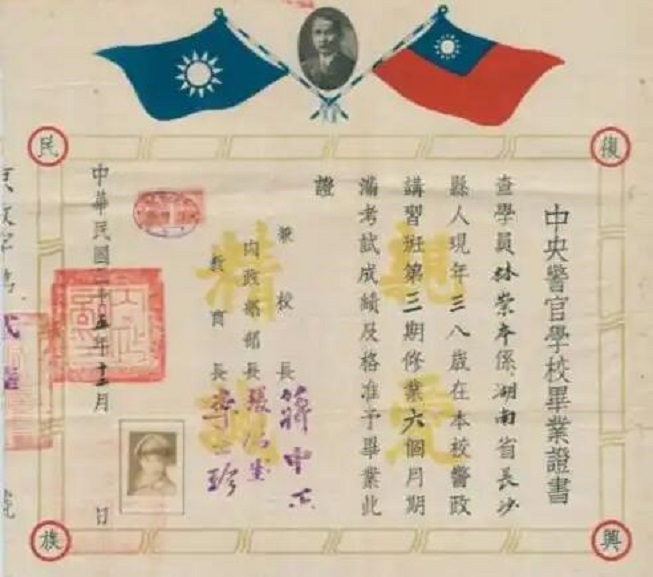 復興民族
親愛精誠
中央警官學校畢業證書
查學員林榮本係湖南省長沙
縣人現年三八歲在本校警政
講習班第三期修業六個月期
滿考試成績及格准予畢業此
證
兼校長蔣中正
內政部部長張厲生
教育長李士珍
中華民國三十五年十二月 日